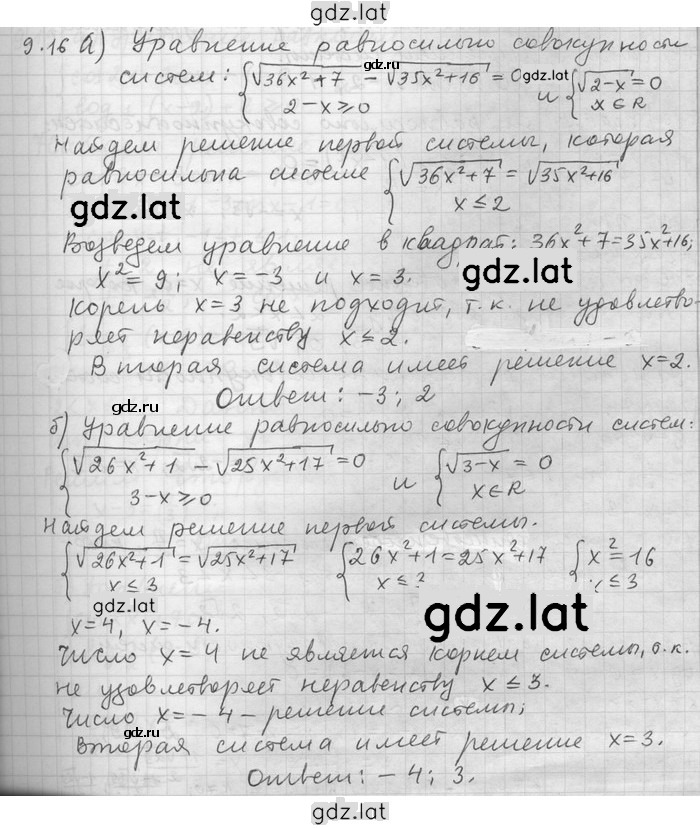 gdz.lat
9.16 а) Уравнение равносильно совокупности
систем: { √(36x²+7) − √(35x²+16) = 0 и { √(2−x) = 0
2−x ≥ 0 x ∈ R
gdz.lat
Найдем решение первой системы, которая
равносильна системе { √(36x²+7) = √(35x²+16)
x ≤ 2
gdz.lat
Возведем уравнение в квадрат: 36x²+7=35x²+16;
x²=9; x=−3 и x=3.
Корень x=3 не подходит, т.к. не удовлетво-
ряет неравенству x ≤ 2.
Вторая система имеет решение x=2.
Ответ: −3; 2
gdz.ru
б) Уравнение равносильно совокупности систем:
{ √(26x²+1) − √(25x²+17) = 0 и { √(3−x) = 0
3−x ≥ 0 x ∈ R
Найдем решение первой системы.
{ √(26x²+1) = √(25x²+17) { 26x²+1=25x²+17 { x²=16
x ≤ 3 x ≤ x ≤ 3
gdz.lat
gdz.lat
x=4, x=−4.
Число x=4 не является корнем системы, т.к.
не удовлетворяет неравенству x ≤ 3.
Число x=−4 − решение системы;
gdz.ru
Вторая система имеет решение x=3.
Ответ: −4; 3.
gdz.lat